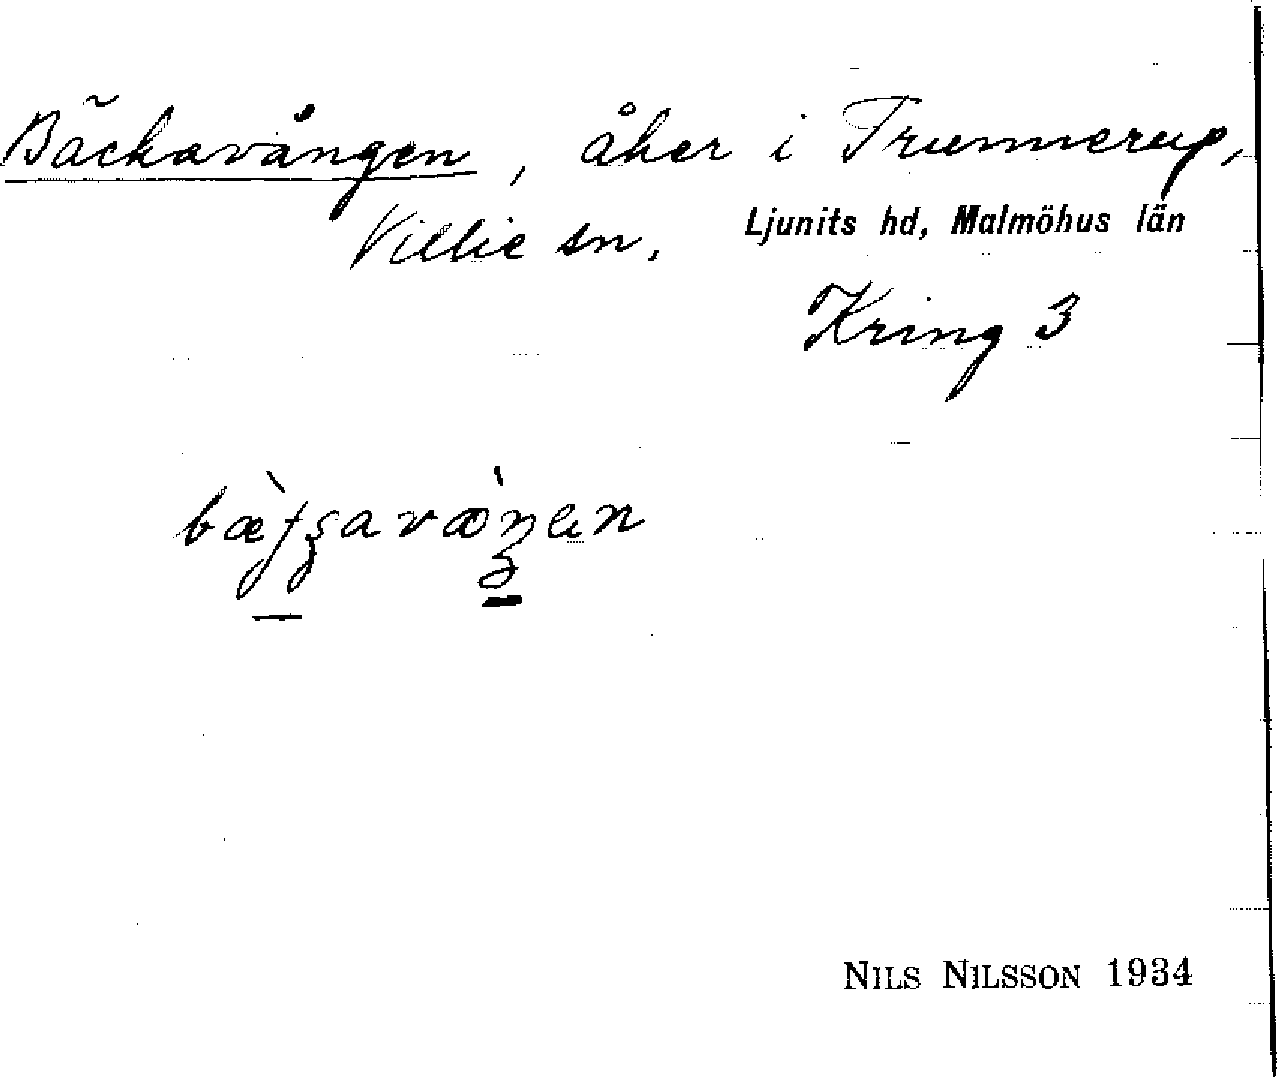 Bäckavången, åker i Trunnerup,
Villie sn, Ljunits hd, Malmöhus län
Kring 3
NILS NILSSON 1934